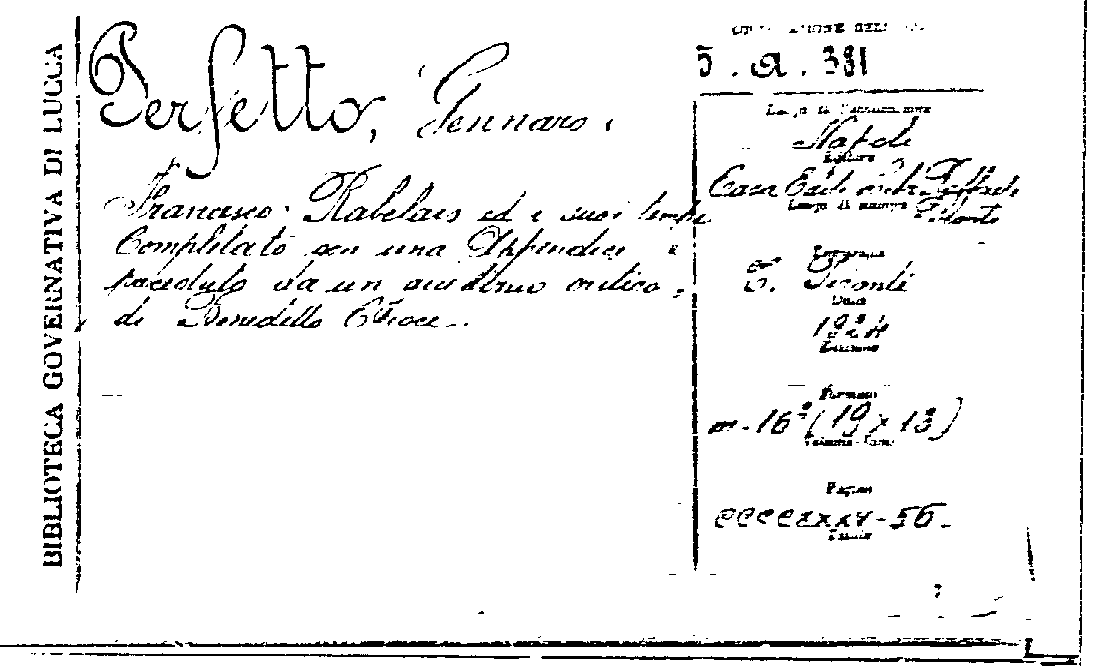 BIBLIOTECA GOVERNATIVA DI LUCCA
Perfetto, Gennaro.
Francesco Rabelais ed i suoi tempi
Completato con una Appendice e
preceduto da un giudizio critico
di Benedetto Croce.
5. a. 381
Napoli
Editore
Casa Edit.
Luogo di stampa
T. Pironti
Data
1924
Formato
in-16° (19 x 13)
Pagine
ccccxxxv-56.